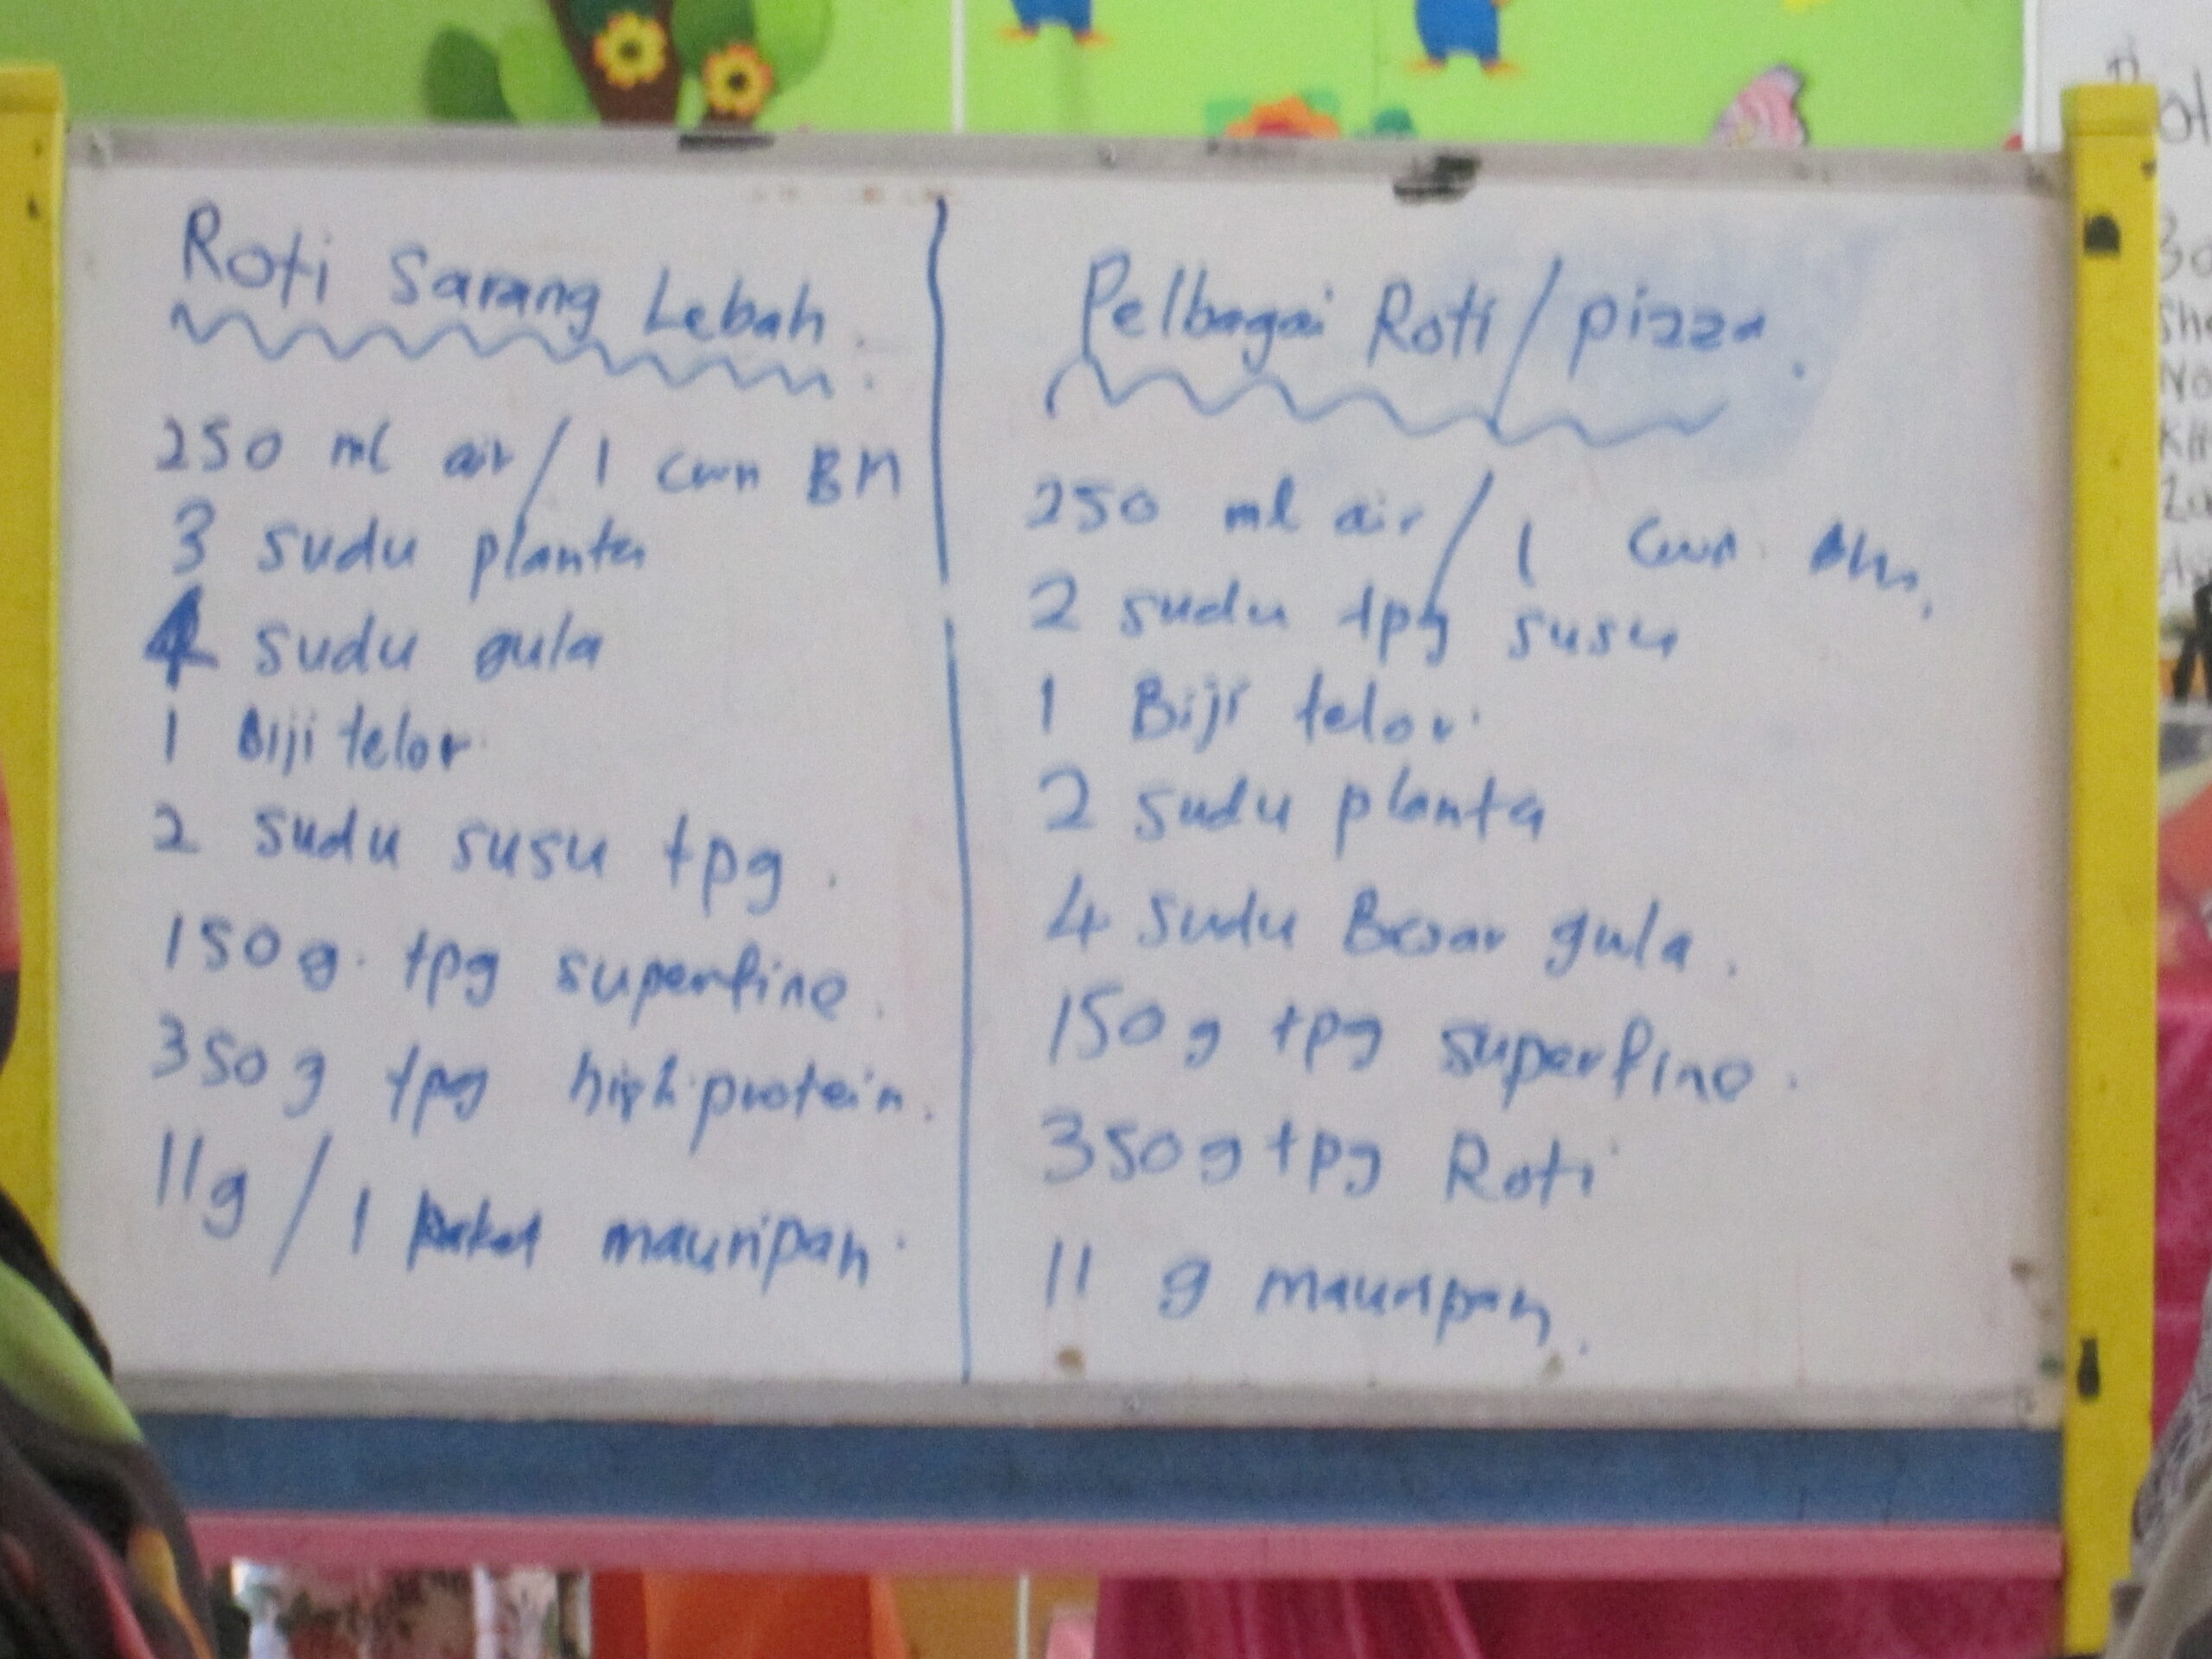 Roti Sarang Lebah.
250 ml air / 1 cwn BM
3 sudu planta
4 sudu gula
1 Biji telor
2 sudu susu tpg.
150 g. tpg superfine.
350 g tpg high protein.
11g / 1 paket mauripan.
Pelbagai Roti / pizza.
250 ml air / 1 cwn
2 sudu tpg susu
1 Biji telor
2 sudu planta
4 sudu Besar gula.
150 g tpg superfine.
350 g tpg Roti
11 g mauripan.